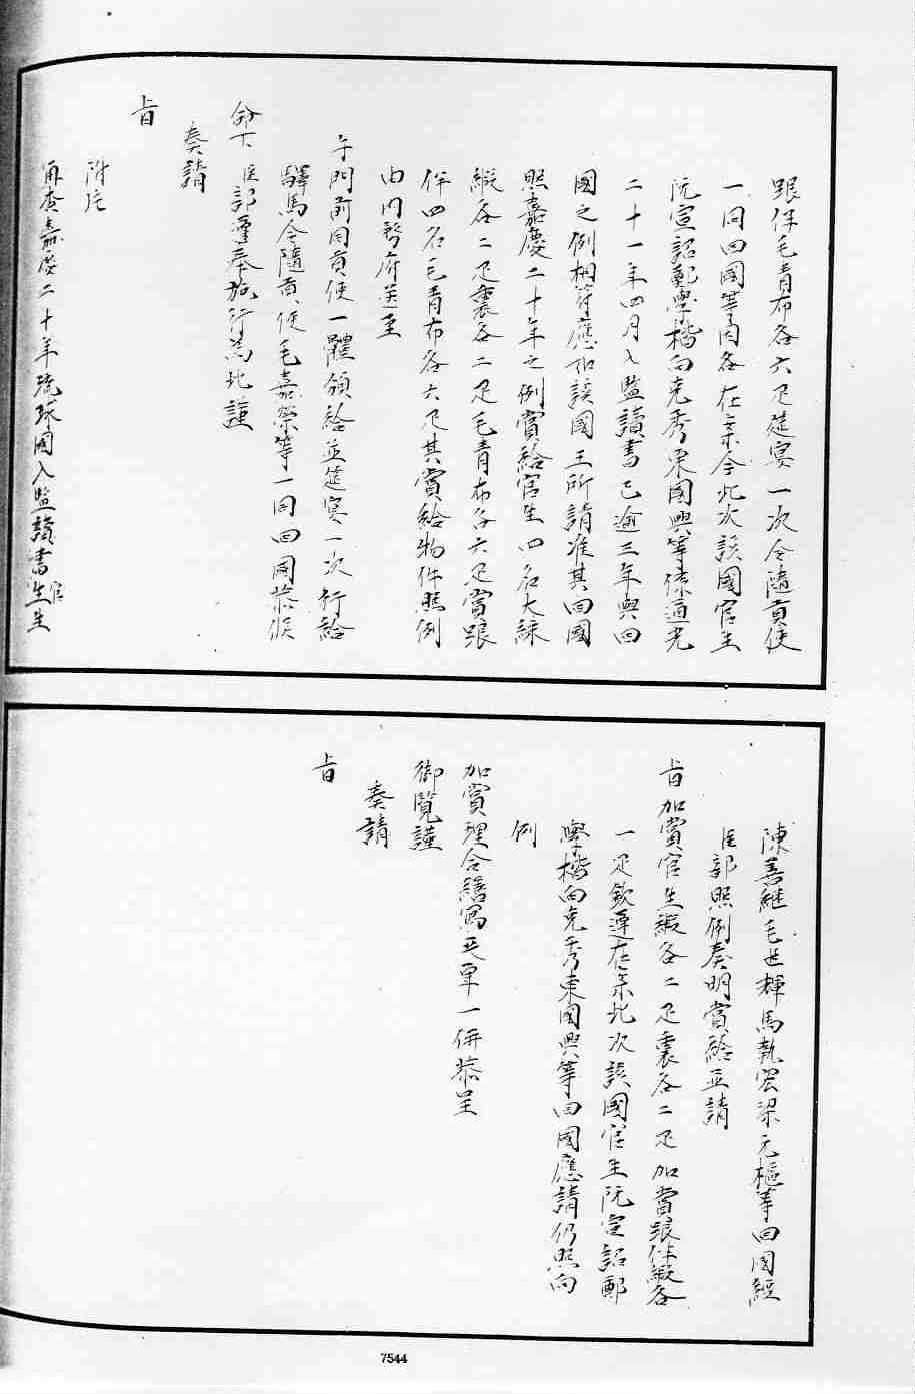 跟伴毛青布各六疋筵宴一次令隨貢使
一同回國等因各在案今此次該國官生
阮宣詔鄭學楷向克秀東國興等係道光
二十一年四月入監讀書已逾三年與回
國之例相符應如該國王所請准其回國
照嘉慶二十年之例賞給官生四名大綵
緞各二疋裏各二疋毛青布各六疋賞跟
伴四名毛青布各六疋其賞給物件照例
由內務府送至
午門前同貢使一體頒給並筵宴一次行給
驛馬令隨貢使毛嘉榮等一同回國恭候
命下臣部遵奉施行為此謹
奏請
旨
附片
再查嘉慶二十年琉球國入監讀書官生
陳善繼毛世輝馬執宏梁元樞等回國經
臣部照例奏明賞給並請
旨加賞官生緞各二疋裏各二疋加賞跟伴緞各
一疋欽遵在案此次該國官生阮宣詔鄭
學楷向克秀東國興等回國應請仍照向
例
加賞理合繕寫夾單一併恭呈
御覽謹
奏請
旨
7544